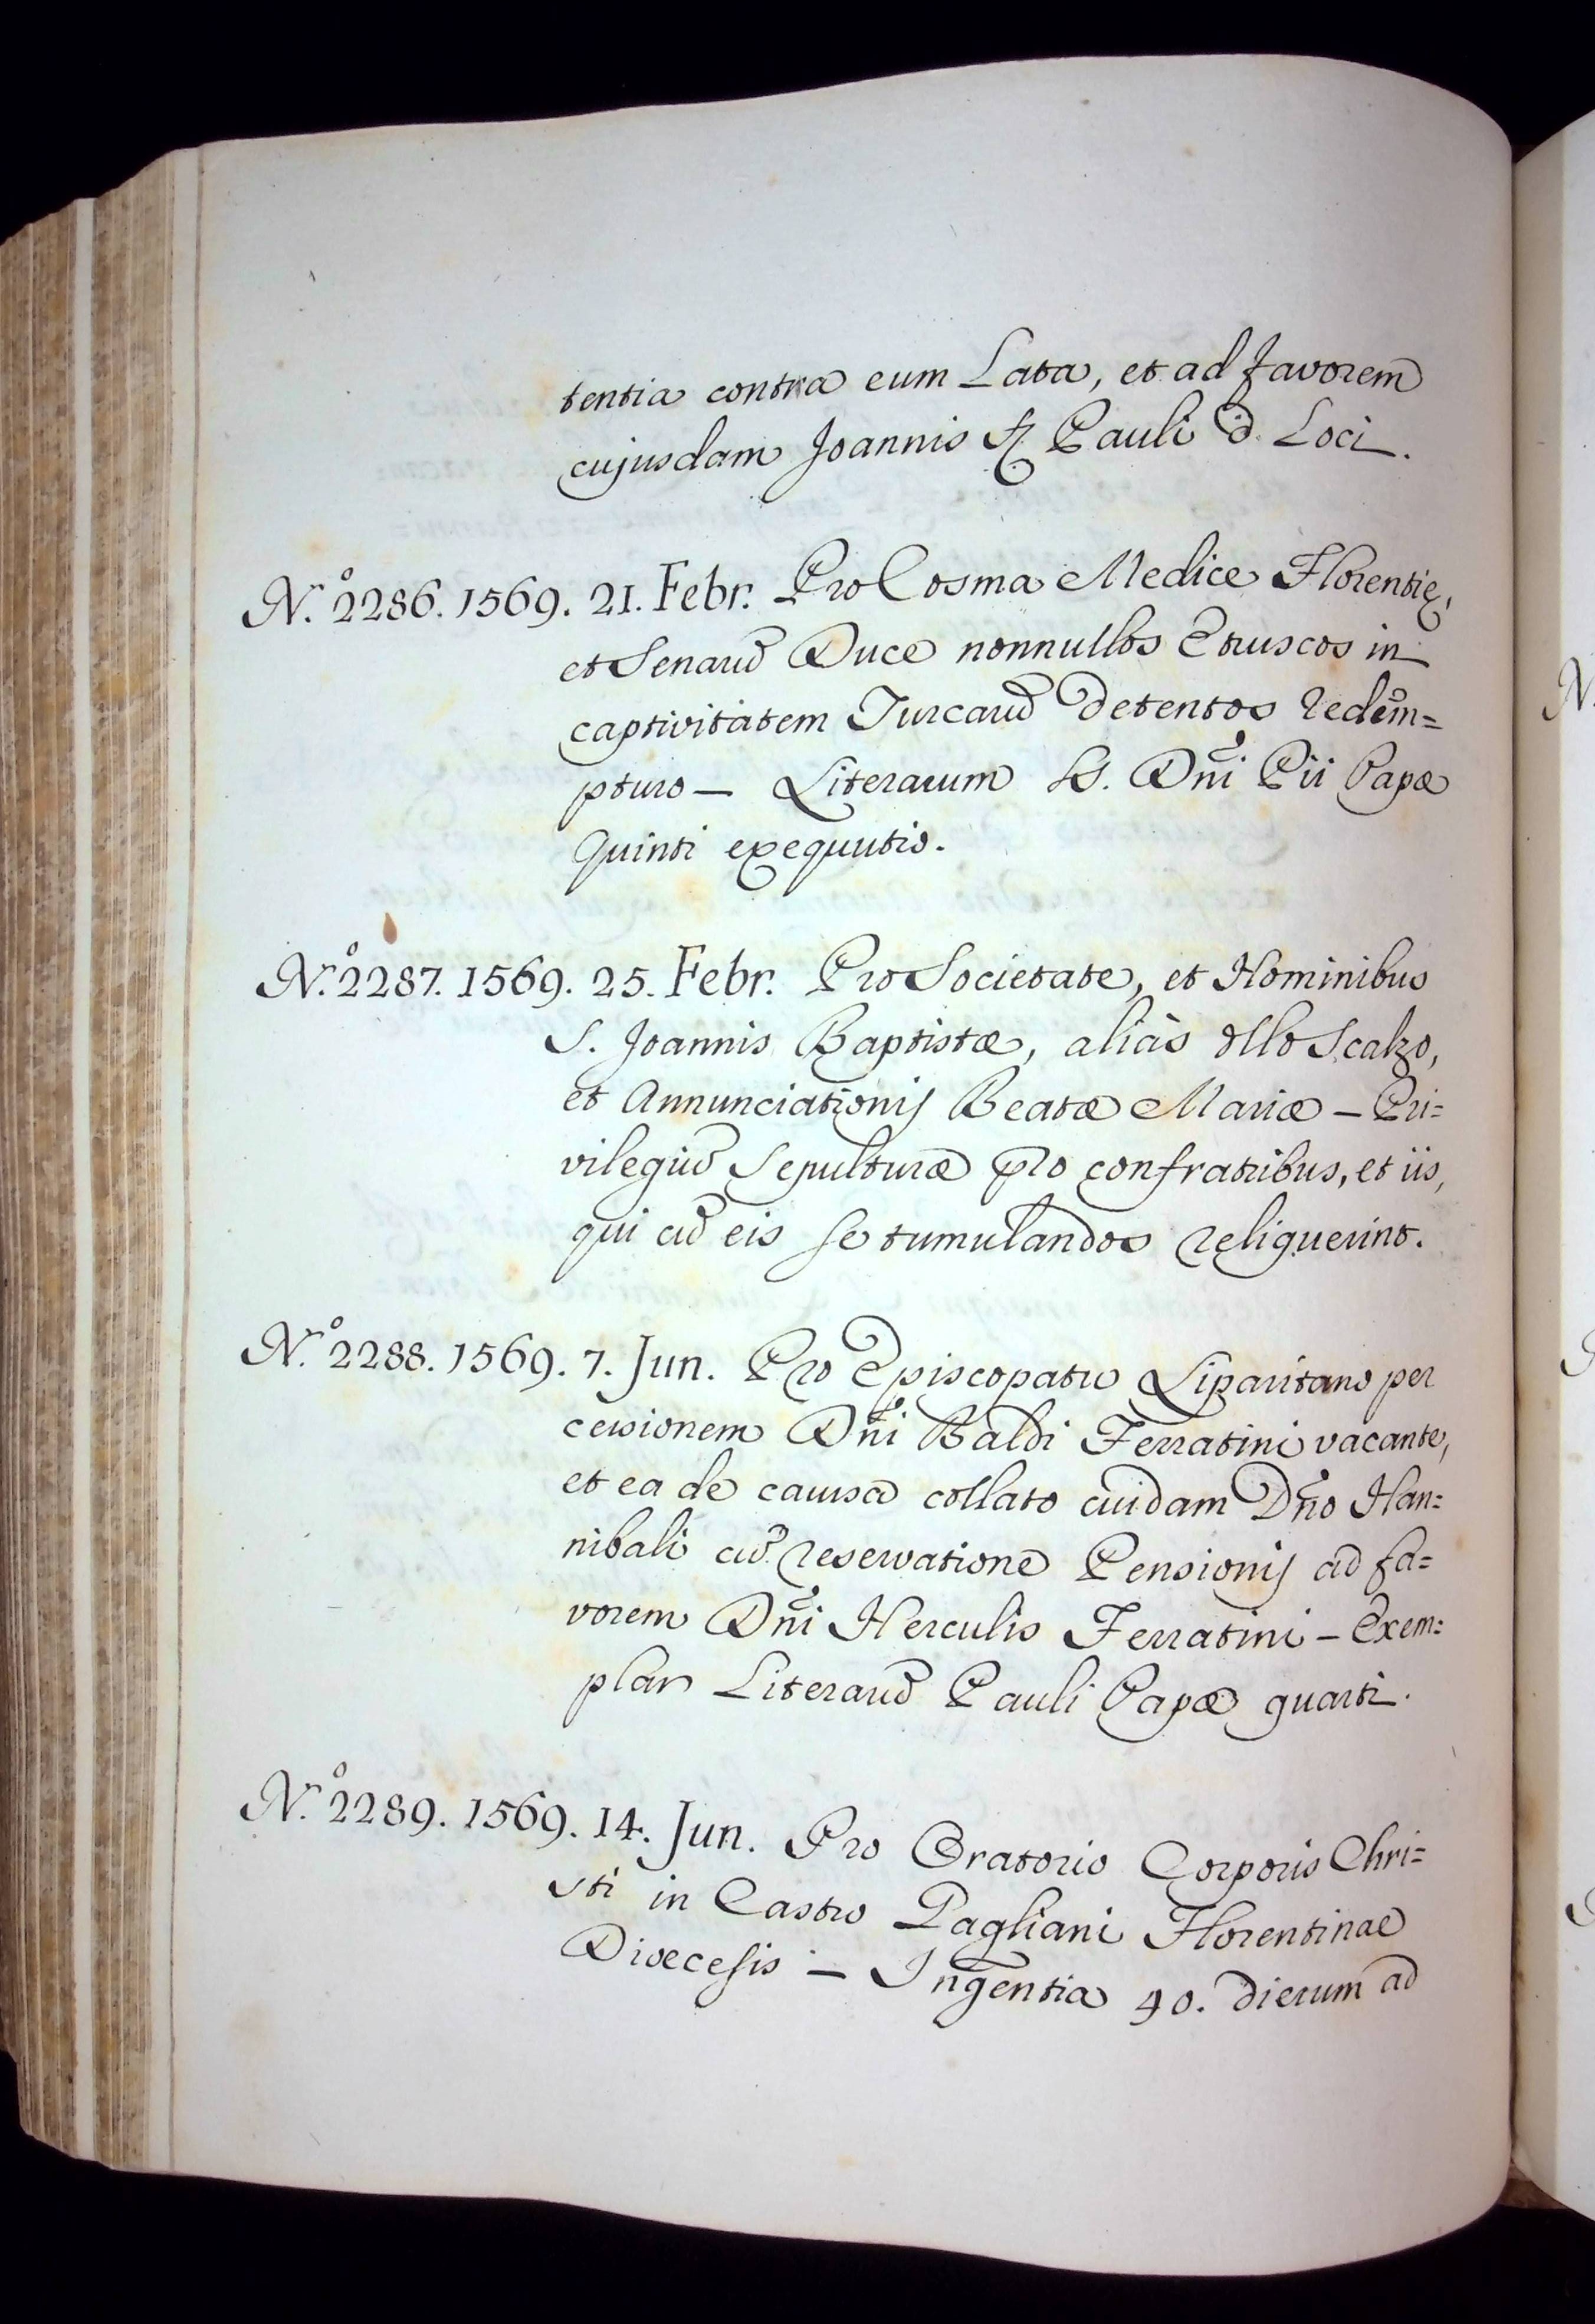 tentia contra eum Lata, et ad favorem
cujusdam Joannis fz Pauli d. Loci.
N.º 2286. 1569. 21. Febr. Pro Cosma Medice Florentię,
et Senarũ Duce nonnullos Etruscos in
captivitatem Turcarũ detentos redem=
pturo — Literarum SS. Dñi Pii Papæ
Quinti exequutio.
N.º 2287. 1569. 25. Febr. Pro Societate, et Hominibus
S. Joannis Baptistæ, aliàs dllo Scalzo,
et Annunciationis Beatæ Mariæ — Pri=
vilegiũ Sepulturæ pro confratribus, et iis,
qui cũ eis se tumulandos reliquerint.
N.º 2288. 1569. 7. Jun. Pro Episcopatu Liparitano per
cessionem Dñi Baldi Ferratini vacante,
et ea de causa collato cuidam Dño Han=
nibali cũ reservatione Pensionis ad fa=
vorem Dñi Herculis Ferratini — Exem=
plar Literarũ Pauli Papæ quarti.
N.º 2289. 1569. 14. Jun. Pro Oratorio Corporis Chri=
sti in Castro Pagliani Florentinae
Dioecesis — Ingentia 40. dierum ad